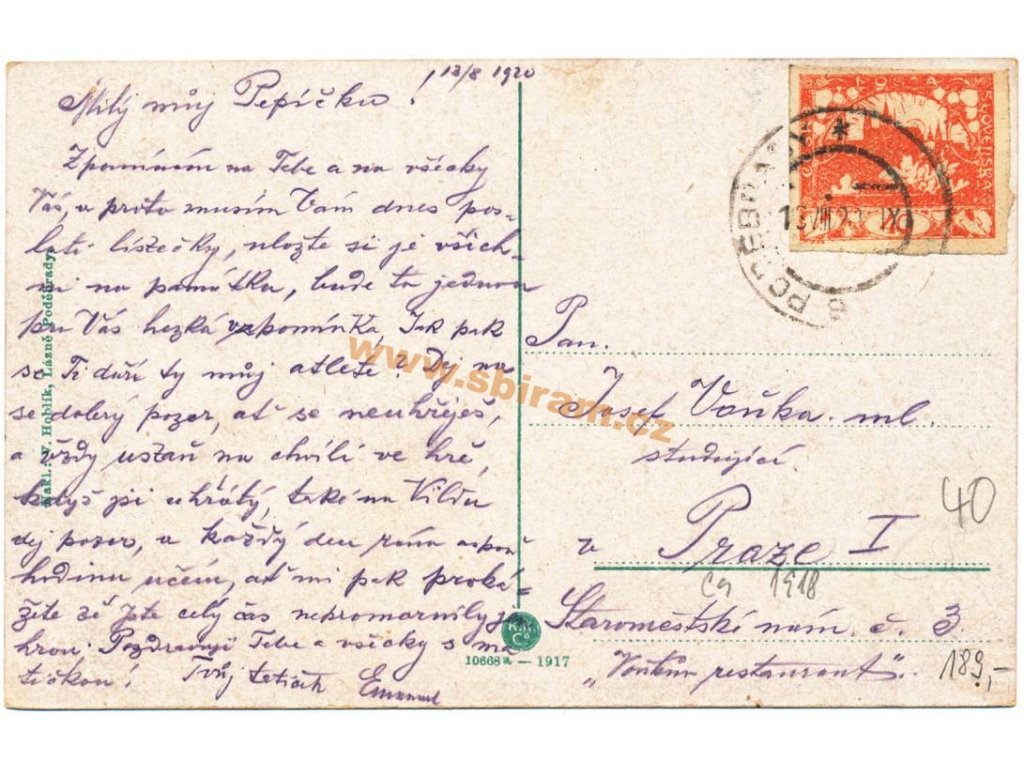 13/8 1920
Milý můj Pepíčku!
Zpomínám na Tebe a na všecky
Vás, a proto musím Vám dnes pos-
lati lístečky, uložte si je všich-
ni na památku, bude to jednou
při Vás hezká vzpomínka. Jak pak
se Ti daří ty můj atlete? Dej na
se dobrý pozor, ať se neuhřeješ,
a vždy ustaň na chvíli ve hře,
když jsi uhřátý, také na Vildu
dej pozor, a každý den ráno aspoň
hodinu učení, ať mi pak proká-
žete že jste celý čas nepromarnily je
hrou. Pozdravuji Tebe a všecky s ma
tičkou! Tvůj Emanuel
Nakl.: V. Hoblík, Lázně Poděbrady.
10668 a — 1917
ČESKO-SLOVENSKÁ
PODĚBRADY
13 VIII 20 IX
Pan.
Josef Vaňka ml.
studující
v Praze I
ca 1918
Staroměstské nám. č. 3
restaurant".
40
189,-
www.sbiram.cz